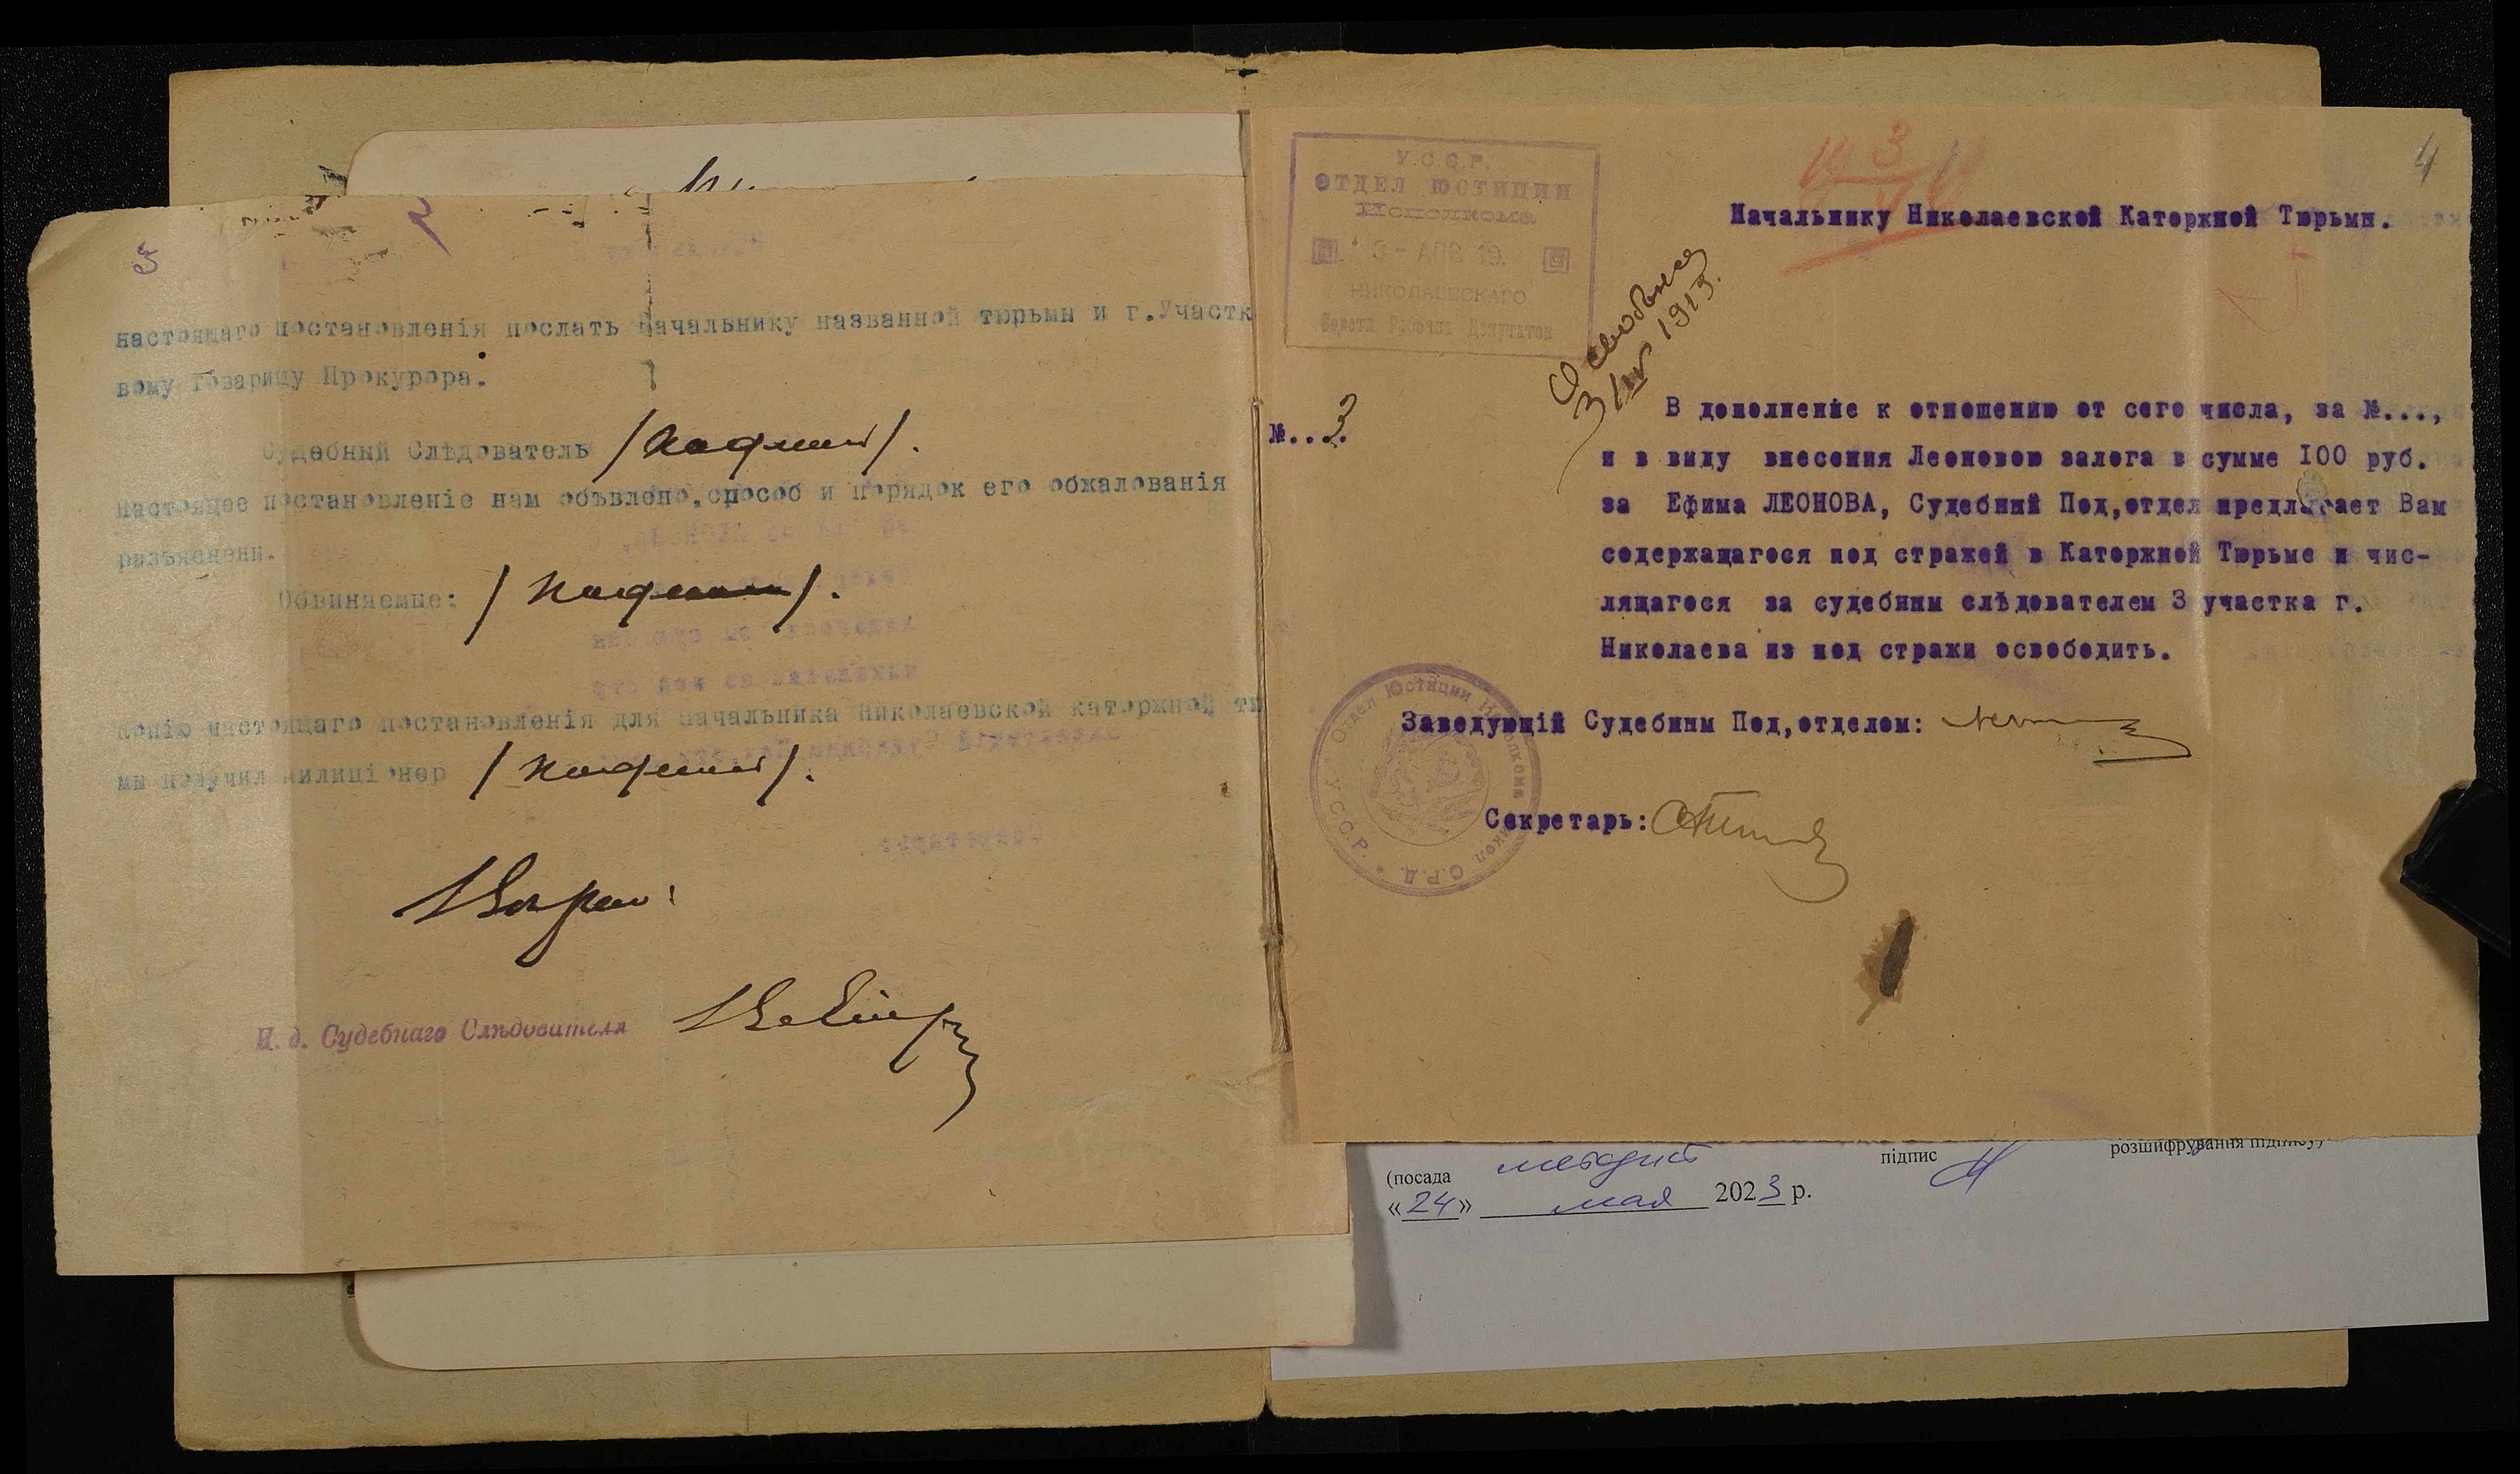 настоящаго постановленія послать Начальнику названной тюрьмы и г.Участк
вому Товарищу Прокурора.
Судебный Слѣдователь /подпись/.
Настоящее постановленіе нам объвлено,способ и порядок его обжалованія
разъяснени.
Обвиняемые: /подписи/.
копію настоящаго постановленія для Начальника Николаевской каторжной тю
мы получил милиціонер /подпись/.
Вѣрно:
И. д. Судебнаго Слѣдователя
4
У.С.С.Р.
ОТДЕЛ ЮСТИЦИИ
Исполкома
3 - АПР 19.
НИКОЛАЕВСКАГО
Совета Рабочих Депутатов
Начальнику Николаевской Каторжной Тюрьмы.
3/IV
№..3.
В дополнение к отношению от сего числа, за №...,
и в виду внесения Леоновою залога в сумме 100 руб.
за Ефима ЛЕОНОВА, Судебный Под,отдел предлагает Вам
содержащагося под стражей в Каторжной Тюрьме и чис-
лящагося за судебным слѣдователем 3 участка г.
Николаева из под стражи освободить.
Заведующій Судебным Под,отделом:
Секретарь:
У.С.С.Р. Отдел Юстиции Исполкома Никол. С.Р.Д.
(посада методист підпис розшифрування підпису)
«24» мая 2023 р.